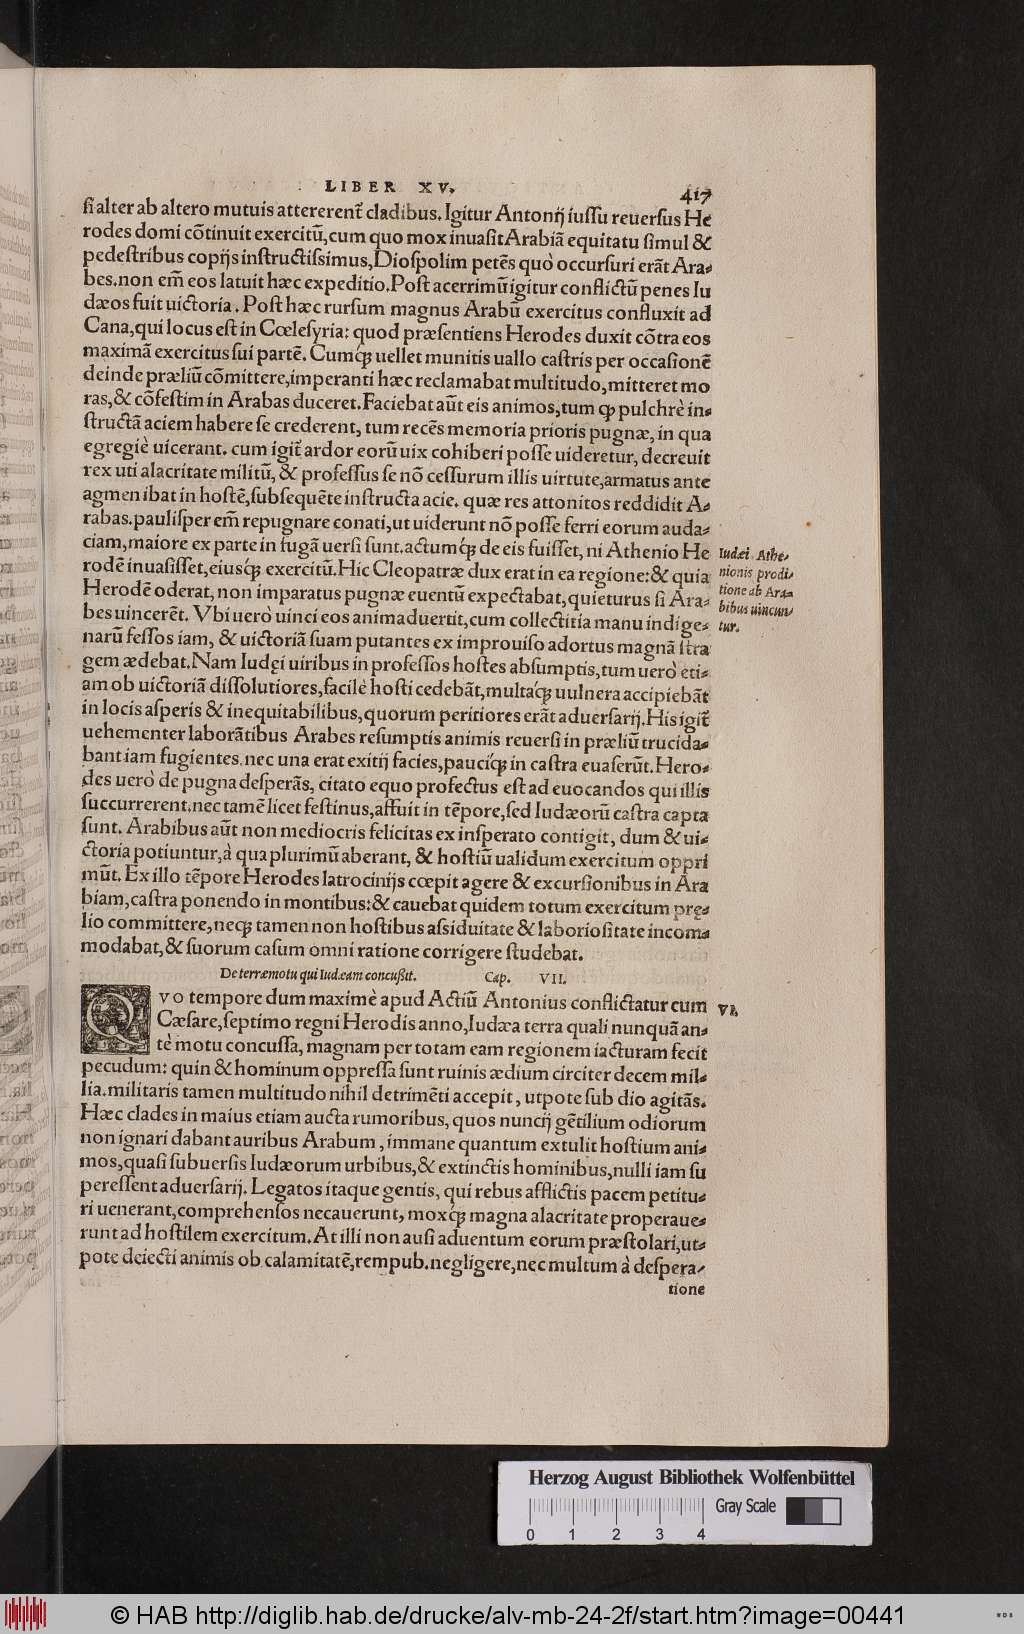 LIBER XV.
417
ſi alter ab altero mutuis attererent᷑ cladibus. Igitur Antonij iuſſu reuerſus He
rodes domi cõtinuit exercitũ, cum quo mox inuaſit Arabiã equitatu ſimul &
pedeſtribus copijs inſtructiſsimus, Dioſpolim petẽs quò occurſuri erãt Ara⸗
bes. non em̃ eos latuit hæc expeditio. Poſt acerrimũ igitur conflictũ penes Iu
dæos fuit uictoria. Poſt hæc rurſum magnus Arabũ exercitus confluxit ad
Cana, qui locus eſt in Cœleſyria: quod præſentiens Herodes duxit cõtra eos
maximã exercitus ſui partẽ. Cumq́; uellet munitis uallo caſtris per occaſionẽ
deinde præliũ cõmittere, imperanti hæc reclamabat multitudo, mitteret mo
ras, & cõfeſtim in Arabas duceret. Faciebat aũt eis animos, tum q̃ pulchrè in⸗
ſtructã aciem habere ſe crederent, tum recẽs memoria prioris pugnæ, in qua
egregiè uicerant. cum igit᷑ ardor eorũ uix cohiberi poſſe uideretur, decreuit
rex uti alacritate militũ, & profeſſus ſe nõ ceſſurum illis uirtute, armatus ante
agmen ibat in hoſtẽ, ſubſequẽte inſtructa acie. quæ res attonitos reddidit A⸗
rabas. pauliſper em̃ repugnare conati, ut uiderunt nõ poſſe ferri eorum auda⸗
ciam, maiore ex parte in fugã uerſi ſunt. actumq́; de eis fuiſſet, ni Athenio He
rodẽ inuaſiſſet, eiusq́; exercitũ. Hic Cleopatræ dux erat in ea regione: & quia
Herodẽ oderat, non imparatus pugnæ euentũ expectabat, quieturus ſi Ara⸗
bes uincerẽt. Vbi uerò uinci eos animaduertit, cum collectitia manu indige⸗
narũ feſſos iam, & uictoriã ſuam putantes ex improuiſo adortus magnã ſtra
gem ædebat. Nam Iudęi uiribus in profeſſos hoſtes abſumptis, tum uerò eti⸗
am ob uictoriã diſſolutiores, facilè hoſti cedebãt, multaq́; uulnera accipiebãt
in locis aſperis & inequitabilibus, quorum peritiores erãt aduerſarij. His igit᷑
uehementer laborãtibus Arabes reſumptis animis reuerſi in præliũ trucida⸗
bant iam fugientes. nec una erat exitij facies, pauciq́; in caſtra euaſerũt. Hero⸗
des uerò de pugna deſperãs, citato equo profectus eſt ad euocandos qui illis
ſuccurrerent. nec tamẽ licet feſtinus, affuit in tẽpore, ſed Iudæorũ caſtra capta
ſunt. Arabibus aũt non mediocris felicitas ex inſperato contigit, dum & ui⸗
ctoria potiuntur, à qua plurimũ aberant, & hoſtiũ ualidum exercitum oppri
mũt. Ex illo tẽpore Herodes latrocinijs cœpit agere & excurſionibus in Ara
biam, caſtra ponendo in montibus: & cauebat quidem totum exercitum prę⸗
lio committere, neq; tamen non hoſtibus aſsiduitate & laborioſitate incom⸗
modabat, & ſuorum caſum omni ratione corrigere ſtudebat.
Iudæi Athe⸗
nionis prodi⸗
tione ab Ara⸗
bibus uincun⸗
tur.
De terræmotu qui Iudæam concußit. Cap. VII.
QVO tempore dum maximè apud Actiũ Antonius conflictatur cum
Cæſare, ſeptimo regni Herodis anno, Iudæa terra quali nunquã an⸗
tè motu concuſſa, magnam per totam eam regionem iacturam fecit
pecudum: quin & hominum oppreſſa ſunt ruinis ædium circiter decem mil⸗
lia. militaris tamen multitudo nihil detrimẽti accepit, utpote ſub dio agitãs.
Hæc clades in maius etiam aucta rumoribus, quos nuncij gẽtilium odiorum
non ignari dabant auribus Arabum, immane quantum extulit hoſtium ani⸗
mos, quaſi ſubuerſis Iudæorum urbibus, & extinctis hominibus, nulli iam ſu
pereſſent aduerſarij. Legatos itaque gentis, qui rebus afflictis pacem petitu⸗
ri uenerant, comprehenſos necauerunt, moxq́; magna alacritate properaue⸗
runt ad hoſtilem exercitum. At illi non auſi aduentum eorum præſtolari, ut⸗
pote deiecti animis ob calamitatẽ, rempub. negligere, nec multum à deſpera⸗
tione
VI.
Herzog August Bibliothek Wolfenbüttel
Gray Scale
0 1 2 3 4
© HAB http://diglib.hab.de/drucke/alv-mb-24-2f/start.htm?image=00441